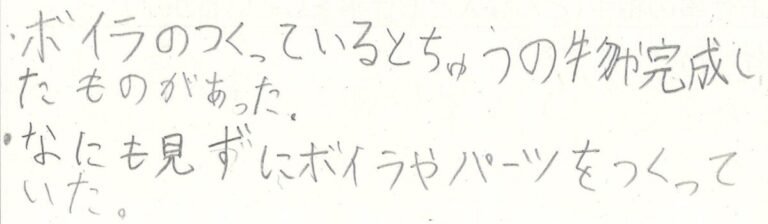 ・ボイラのつくっているとちゅうの物が完成し
たものがあった。
・なにも見ずにボイラやパーツをつくって
いた。